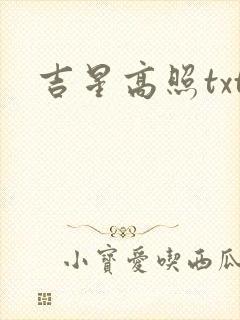 吉星高照txt
小寶愛喫西瓜